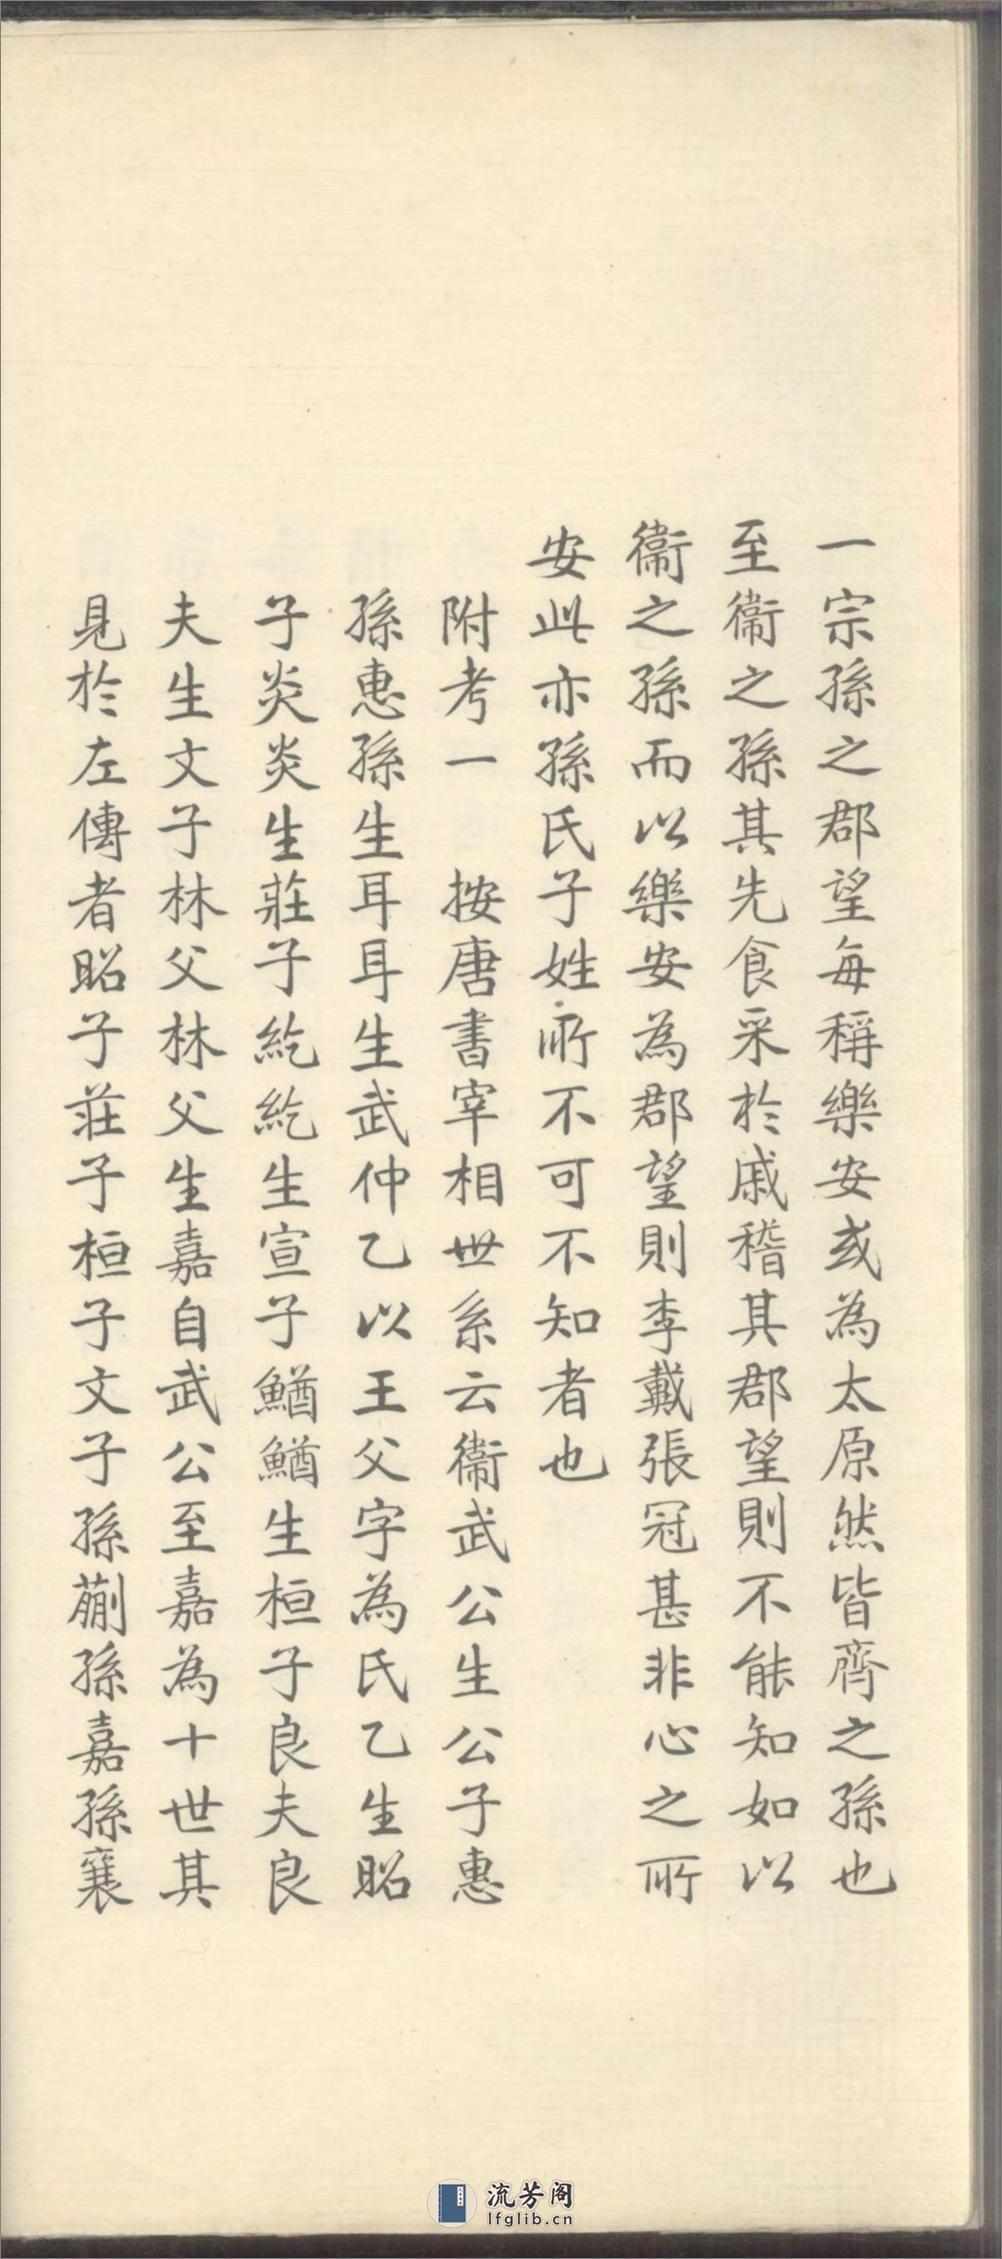 一宗孫之郡望每稱樂安或為太原然皆齊之孫也
至衞之孫其先食采於戚稽其郡望則不能知如以
衞之孫而以樂安為郡望則李戴張冠甚非心之所
安此亦孫氏子姓所不可不知者也
附考一 按唐書宰相世系云衞武公生公子惠
孫惠孫生耳耳生武仲乙以王父字為氏乙生昭
子炎炎生莊子紇紇生宣子鰌鰌生桓子良夫良
夫生文子林父林父生嘉自武公至嘉為十世其
見於左傳者昭子莊子桓子文子孫蒯孫嘉孫襄
流芳阁
lfglib.cn